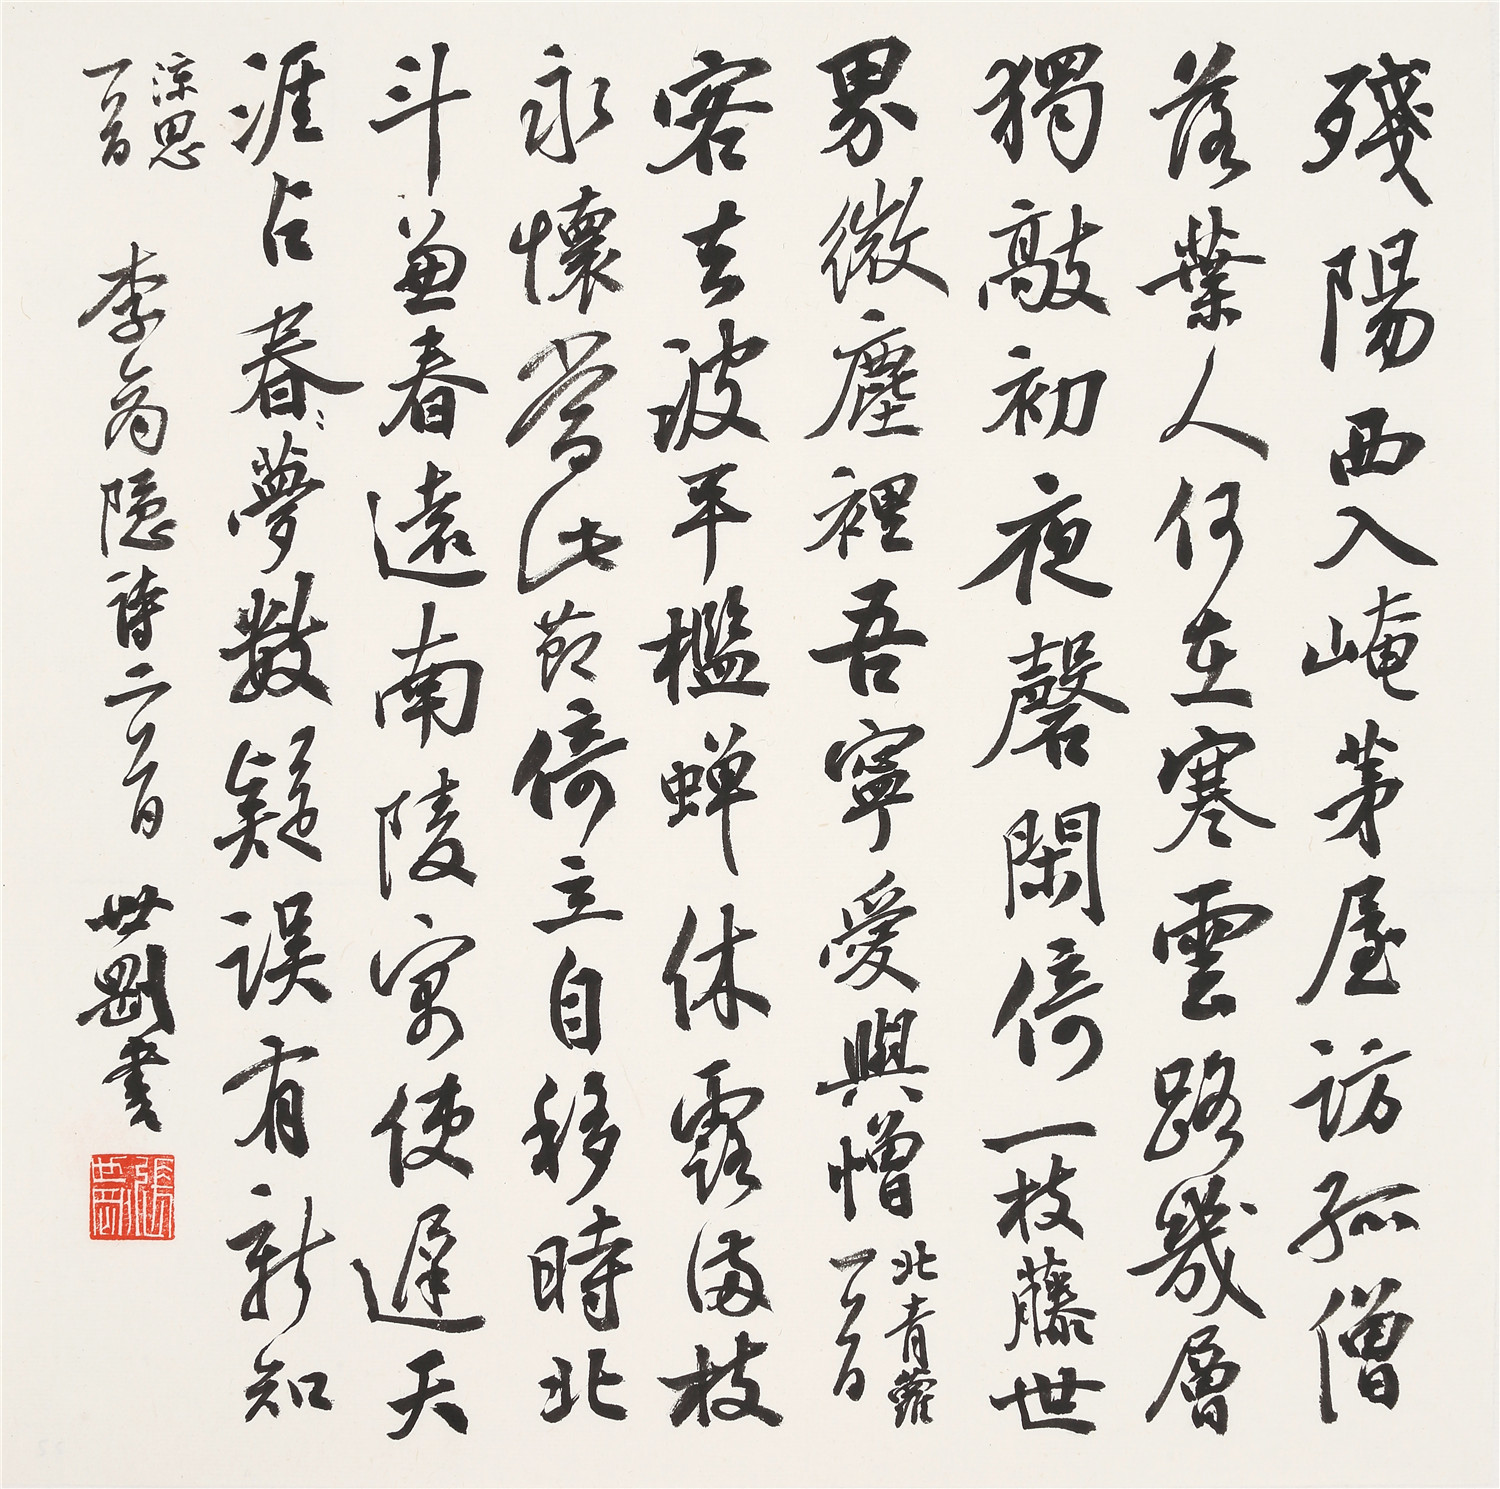 殘陽西入崦茅屋訪孤僧
落葉人何在寒雲路幾層
獨敲初夜磬閑倚一枝藤世
界微塵裡吾寧愛與憎
北青蘿
一首
客去波平檻蝉休露滿枝
永懷當此節倚立自移時北
斗兼春遠南陵寓使遲天
涯占春夢數疑误有新知
涼思
一首
李商隐詩二首 世剛書
張世剛